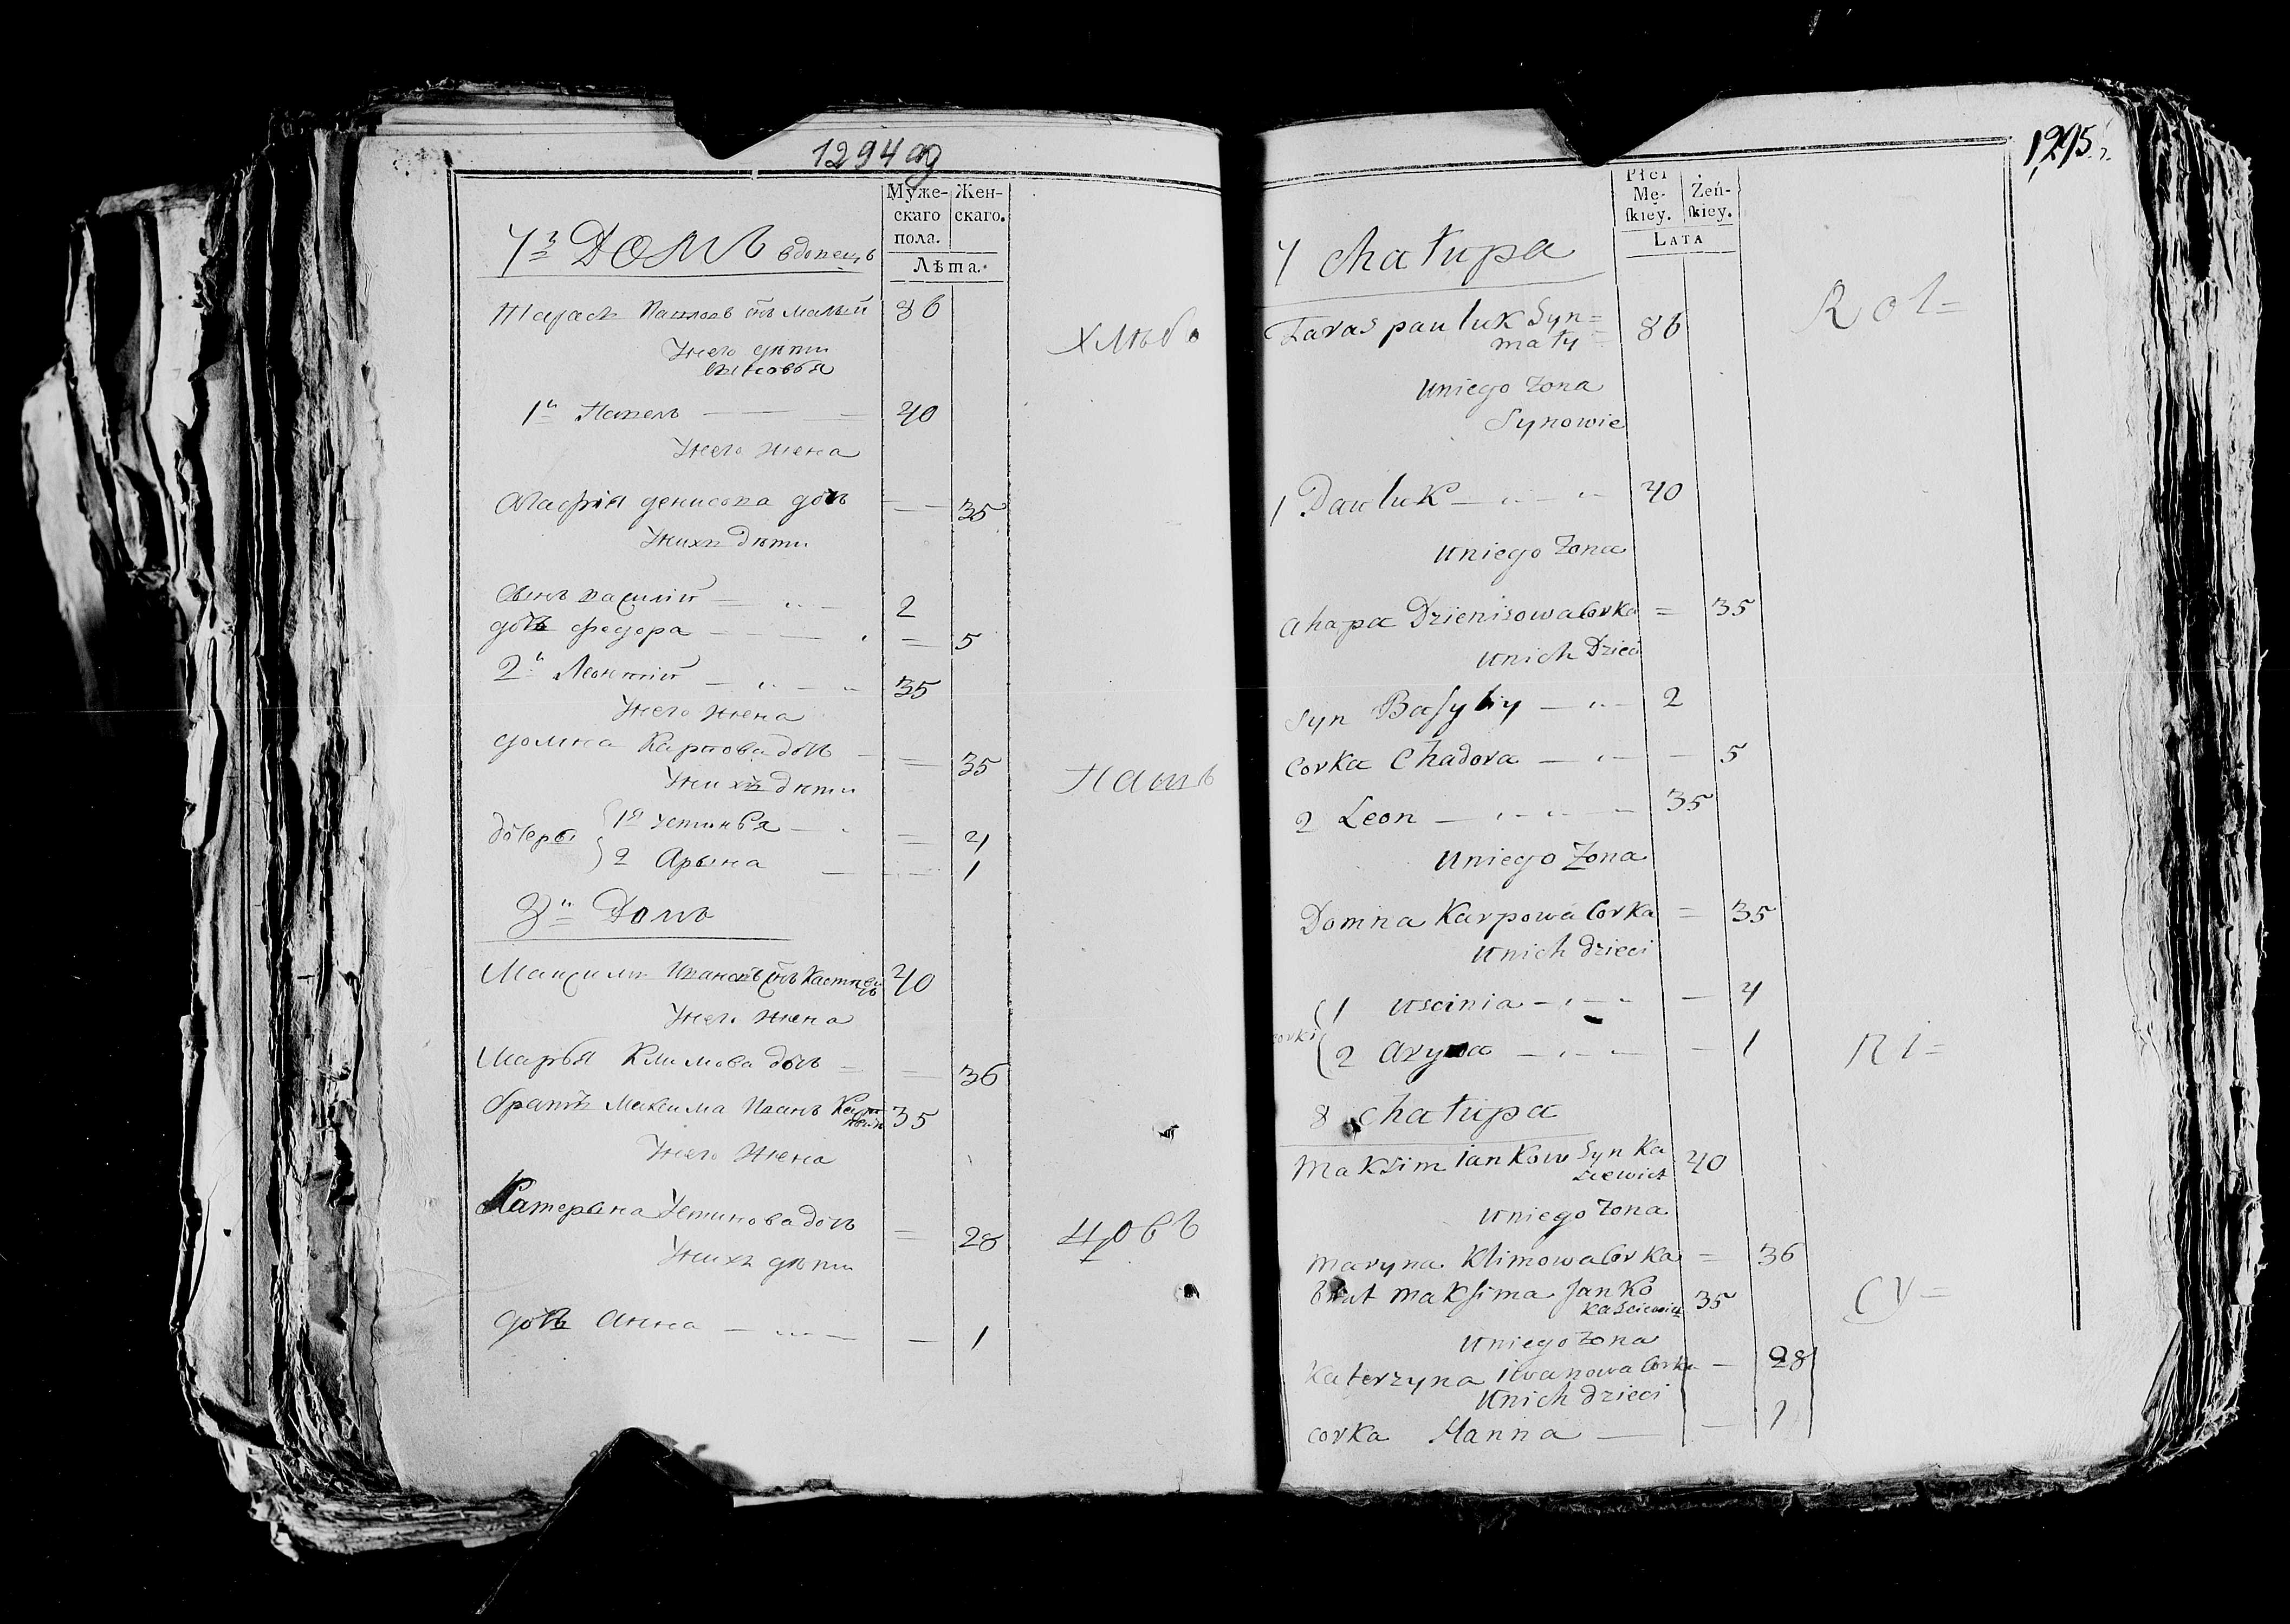 1294 об
Муже-
скаго
пола.
Жен-
скаго.
Лѣта.
7й Домъ вдовецъ
Тарасъ Павловъ снъ Малый 86
Унего дѣти
сыновья
1й Павелъ 40
Унего жена
Агафія Денисова дочь 35
Унихъ дѣти
сынъ Василій 2
дочь Федора 5
2й Леонтій 35
Унего жена
Домна Карпова дочь 35
Унихъ дѣти
дочери 1я Устинья 4
2 Арына 1
8й Домъ
Максимъ Ивановъ снъ 40
Унего жена
Марья Климова дочь 36
братъ Максима Иванъ 35
Унего жена
Катерына Устинова дочь 28
Унихъ дѣти
дочь Анна 1
Хлѣбо
Пашъ
цовъ
1295
Płci
Mę-
skiey.
Żeń-
skiey.
Lata
7 chałupa
Taras pauluk Syn=
mały 86
Uniego Zona
Synowie
1 Pauluk 40
Uniego Zona
Ahapa Dzienisowa Corka 35
Unich Dzieci
Syn Basyliy 2
Corka Chadora 5
2 Leon 35
Uniego Zona
Domna Karpowa Corka 35
Unich dzieci
corki 1 Uscinia 4
2 Aryna 1
8 chałupa
Maksim Jankow Syn Ka
sciewicz 40
Uniego Zona
Maryna Klimowa Corka 36
brat Maksima Janko
Kasciewicz 35
Uniego Zona
Katerzyna Iwanowa Corka 28
Unich dzieci
corka Hanna 1
Rol=
ni=
cy=